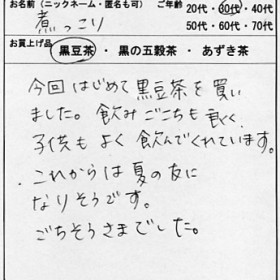 お名前(ニックネーム・匿名も可) ご年齢
煮っころり
20代・30代・40代
50代・60代・70代
お買上げ品
黒豆茶 ・ 黒の五穀茶 ・ あずき茶
今回はじめて黒豆茶を買い
ました。飲みごこちも良く、
子供もよく飲んでくれています。
これからは夏の友に
なりそうです。
ごちそうさまでした。